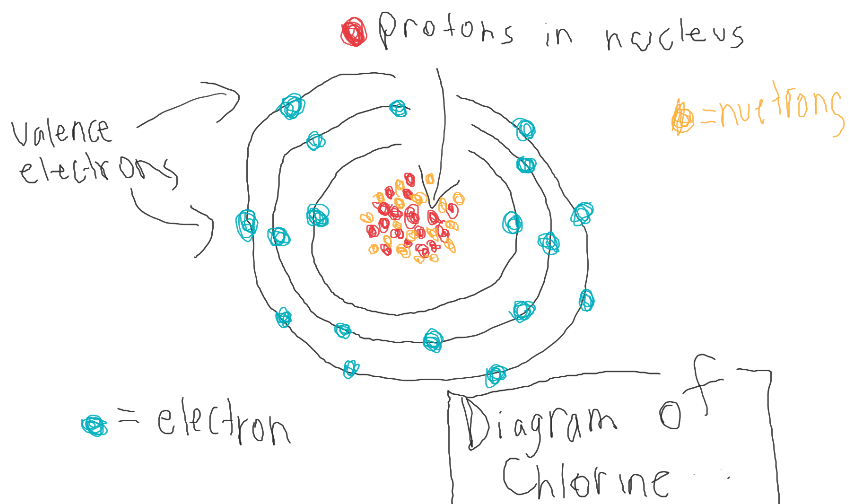 protons in nucleus
= nuetrons
Valence
electrons
= electron
Diagram of
Chlorine